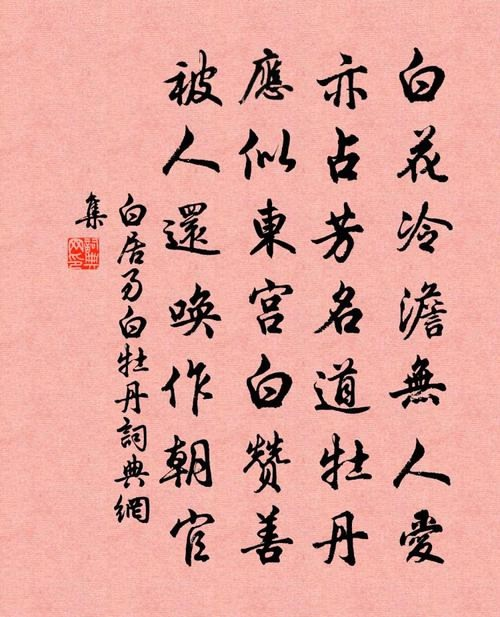 白花冷澹無人愛
亦占芳名道牡丹
應似東宮白贊善
被人還喚作朝官
白居易白牡丹詞典網
集
詞典網印